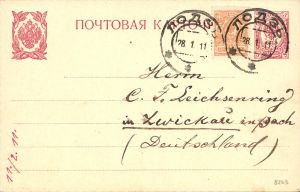 ПОЧТОВАЯ КА
ЛОДЗЬ
28 1 11
ЛОДЗЬ
28 1 11
Herrn
C. F. Leichsenring
in Zwickau in Sach
(Deutschland)
11/2. 11.
8263